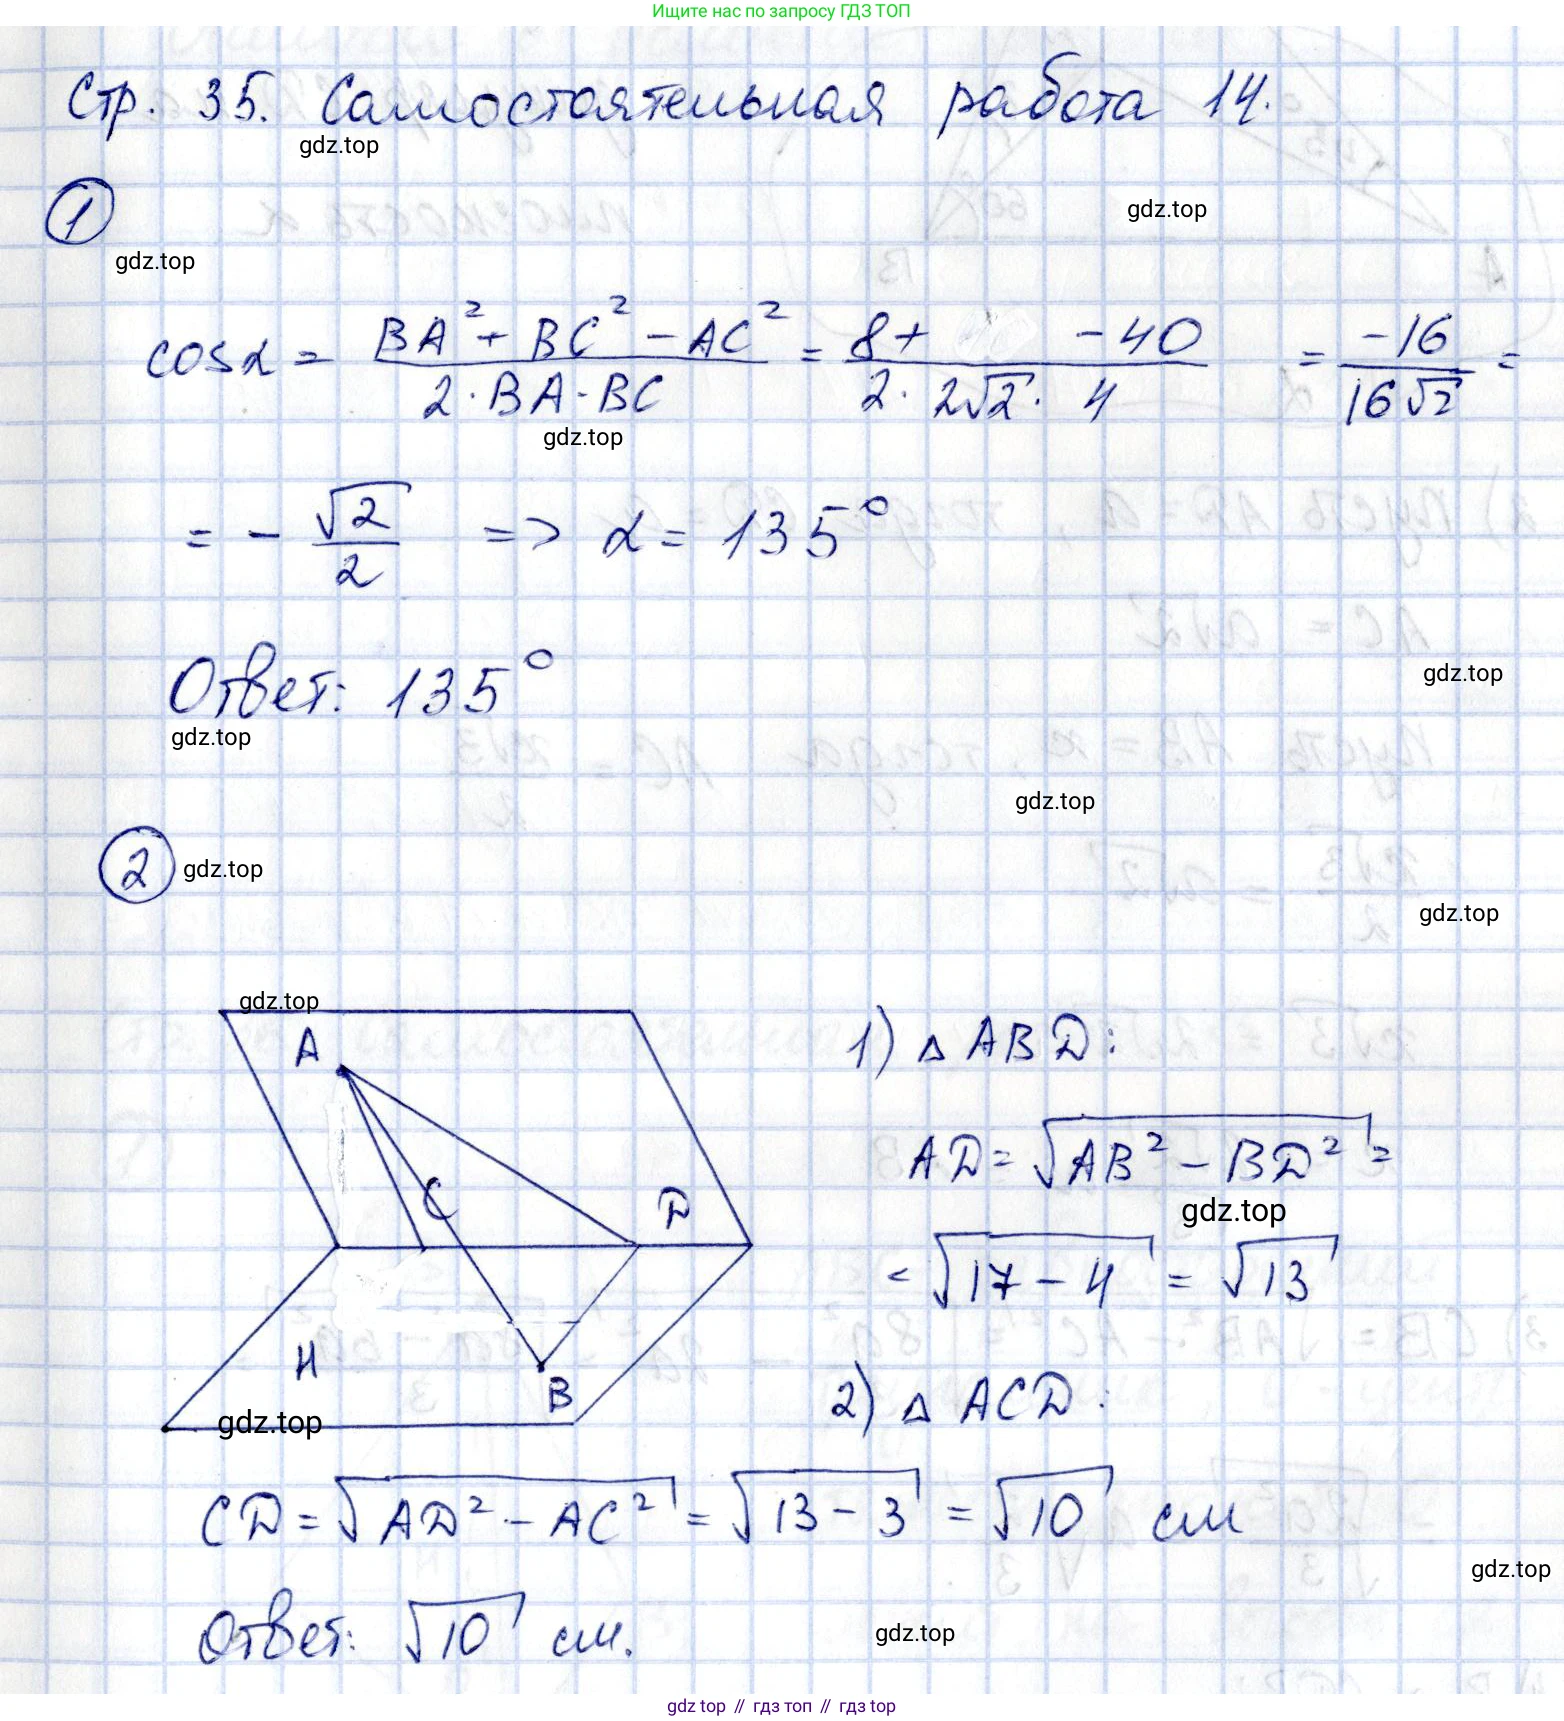 Ищите нас по запросу ГДЗ ТОП
Стр. 35. Самостоятельная работа 14.
gdz.top
1
gdz.top
gdz.top
cosα = (BA² + BC² - AC²)/(2·BA·BC) = (8+ -40)/(2·2√2·4) = -16/(16√2) =
gdz.top
= - √2/2 => α = 135°
Ответ: 135°
gdz.top
gdz.top
gdz.top
2
gdz.top
gdz.top
gdz.top
A
C
D
H
B
gdz.top
1) △ ABD:
AD = √(AB² - BD²) =
gdz.top
= √(17 - 4) = √13
2) △ ACD:
CD = √(AD² - AC²) = √(13 - 3) = √10 см
gdz.top
Ответ: √10 см.
gdz.top
gdz top // гдз топ // гдз top